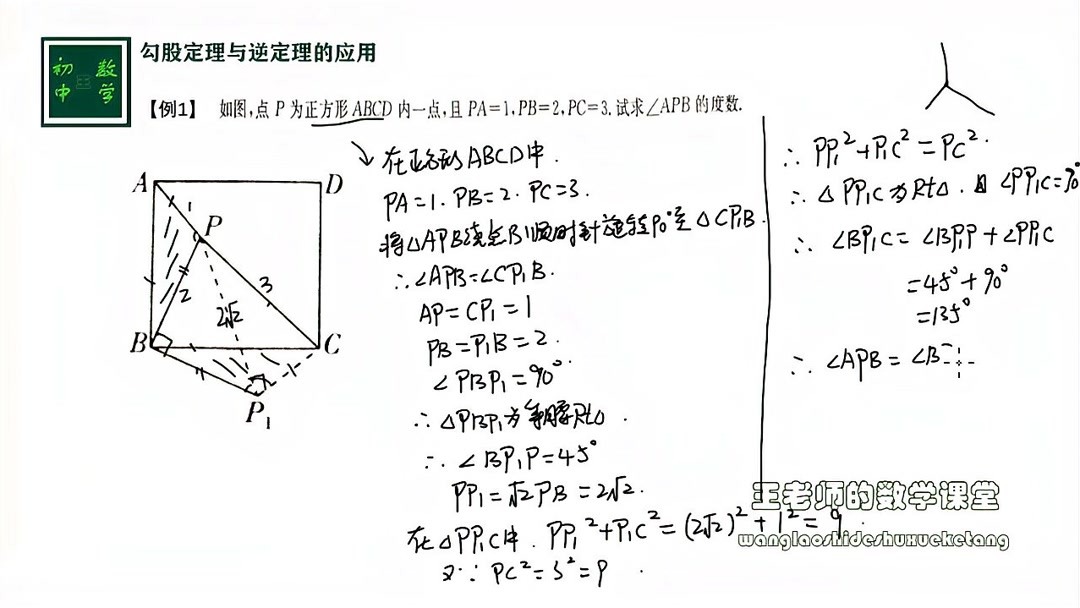 初中
数学
王
勾股定理与逆定理的应用
【例1】 如图,点 P 为正方形 ABCD 内一点,且 PA=1,PB=2,PC=3.试求∠APB 的度数.
A
D
1
P
2
3
2√2
B
C
P₁
在正方形ABCD中.
PA=1. PB=2. PC=3.
将△APB绕点B顺时针旋转90°至△CP₁B.
∴∠APB=∠CP₁B.
AP=CP₁=1
PB=P₁B=2.
∠PBP₁=90°.
∴△PBP₁为等腰Rt△.
∴∠BP₁P=45°
PP₁=√2PB=2√2.
在△PP₁C中. PP₁²+P₁C²=(2√2)²+1²=9.
又∵PC²=3²=9.
∴PP₁²+P₁C²=PC².
∴△PP₁C为Rt△.且∠PP₁C=90°
∴∠BP₁C=∠BP₁P+∠PP₁C
=45°+90°
=135°
∴∠APB=∠B
王老师的数学课堂
wanglaoshideshuxueketang